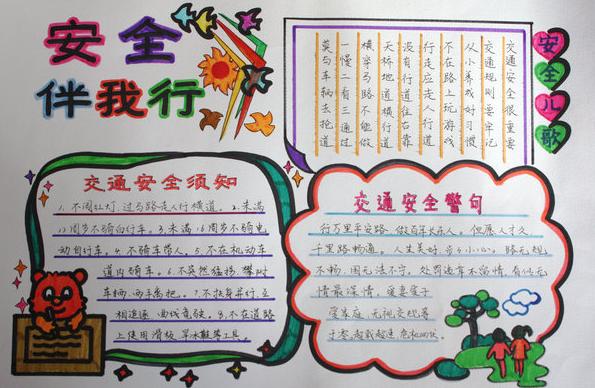 安全
伴我行
安全儿歌
交通安全很重要
交通规则要牢记
从小养成好习惯
不在路上玩游戏
行走应走人行道
没有行道往右靠
天桥地道横行道
横穿马路不能做
一慢二看三通过
莫与车辆去抢道
交通安全须知
1.不闯红灯,过马路走人行横道。2.未满
12周岁不骑自行车。3.未满16周岁不骑电
动自行车。4.不骑车带人。5.不在机动车
道内骑车。6.不突然猛拐、攀附
车辆、两手离把。7.不扶身并行、互
相追逐、曲线竞驶。8.不在道路
上使用滑板、旱冰鞋等工具。
交通安全警句
行万里平安路,做百年长在人。但愿人才久,
千里路畅通。人生美好,步步小心。路无规
不畅,国无法不宁。处罚违章不留情,看似无
情最深情。爱妻爱子
爱家庭,无视交规等
于零。超载超速,危机四伏。